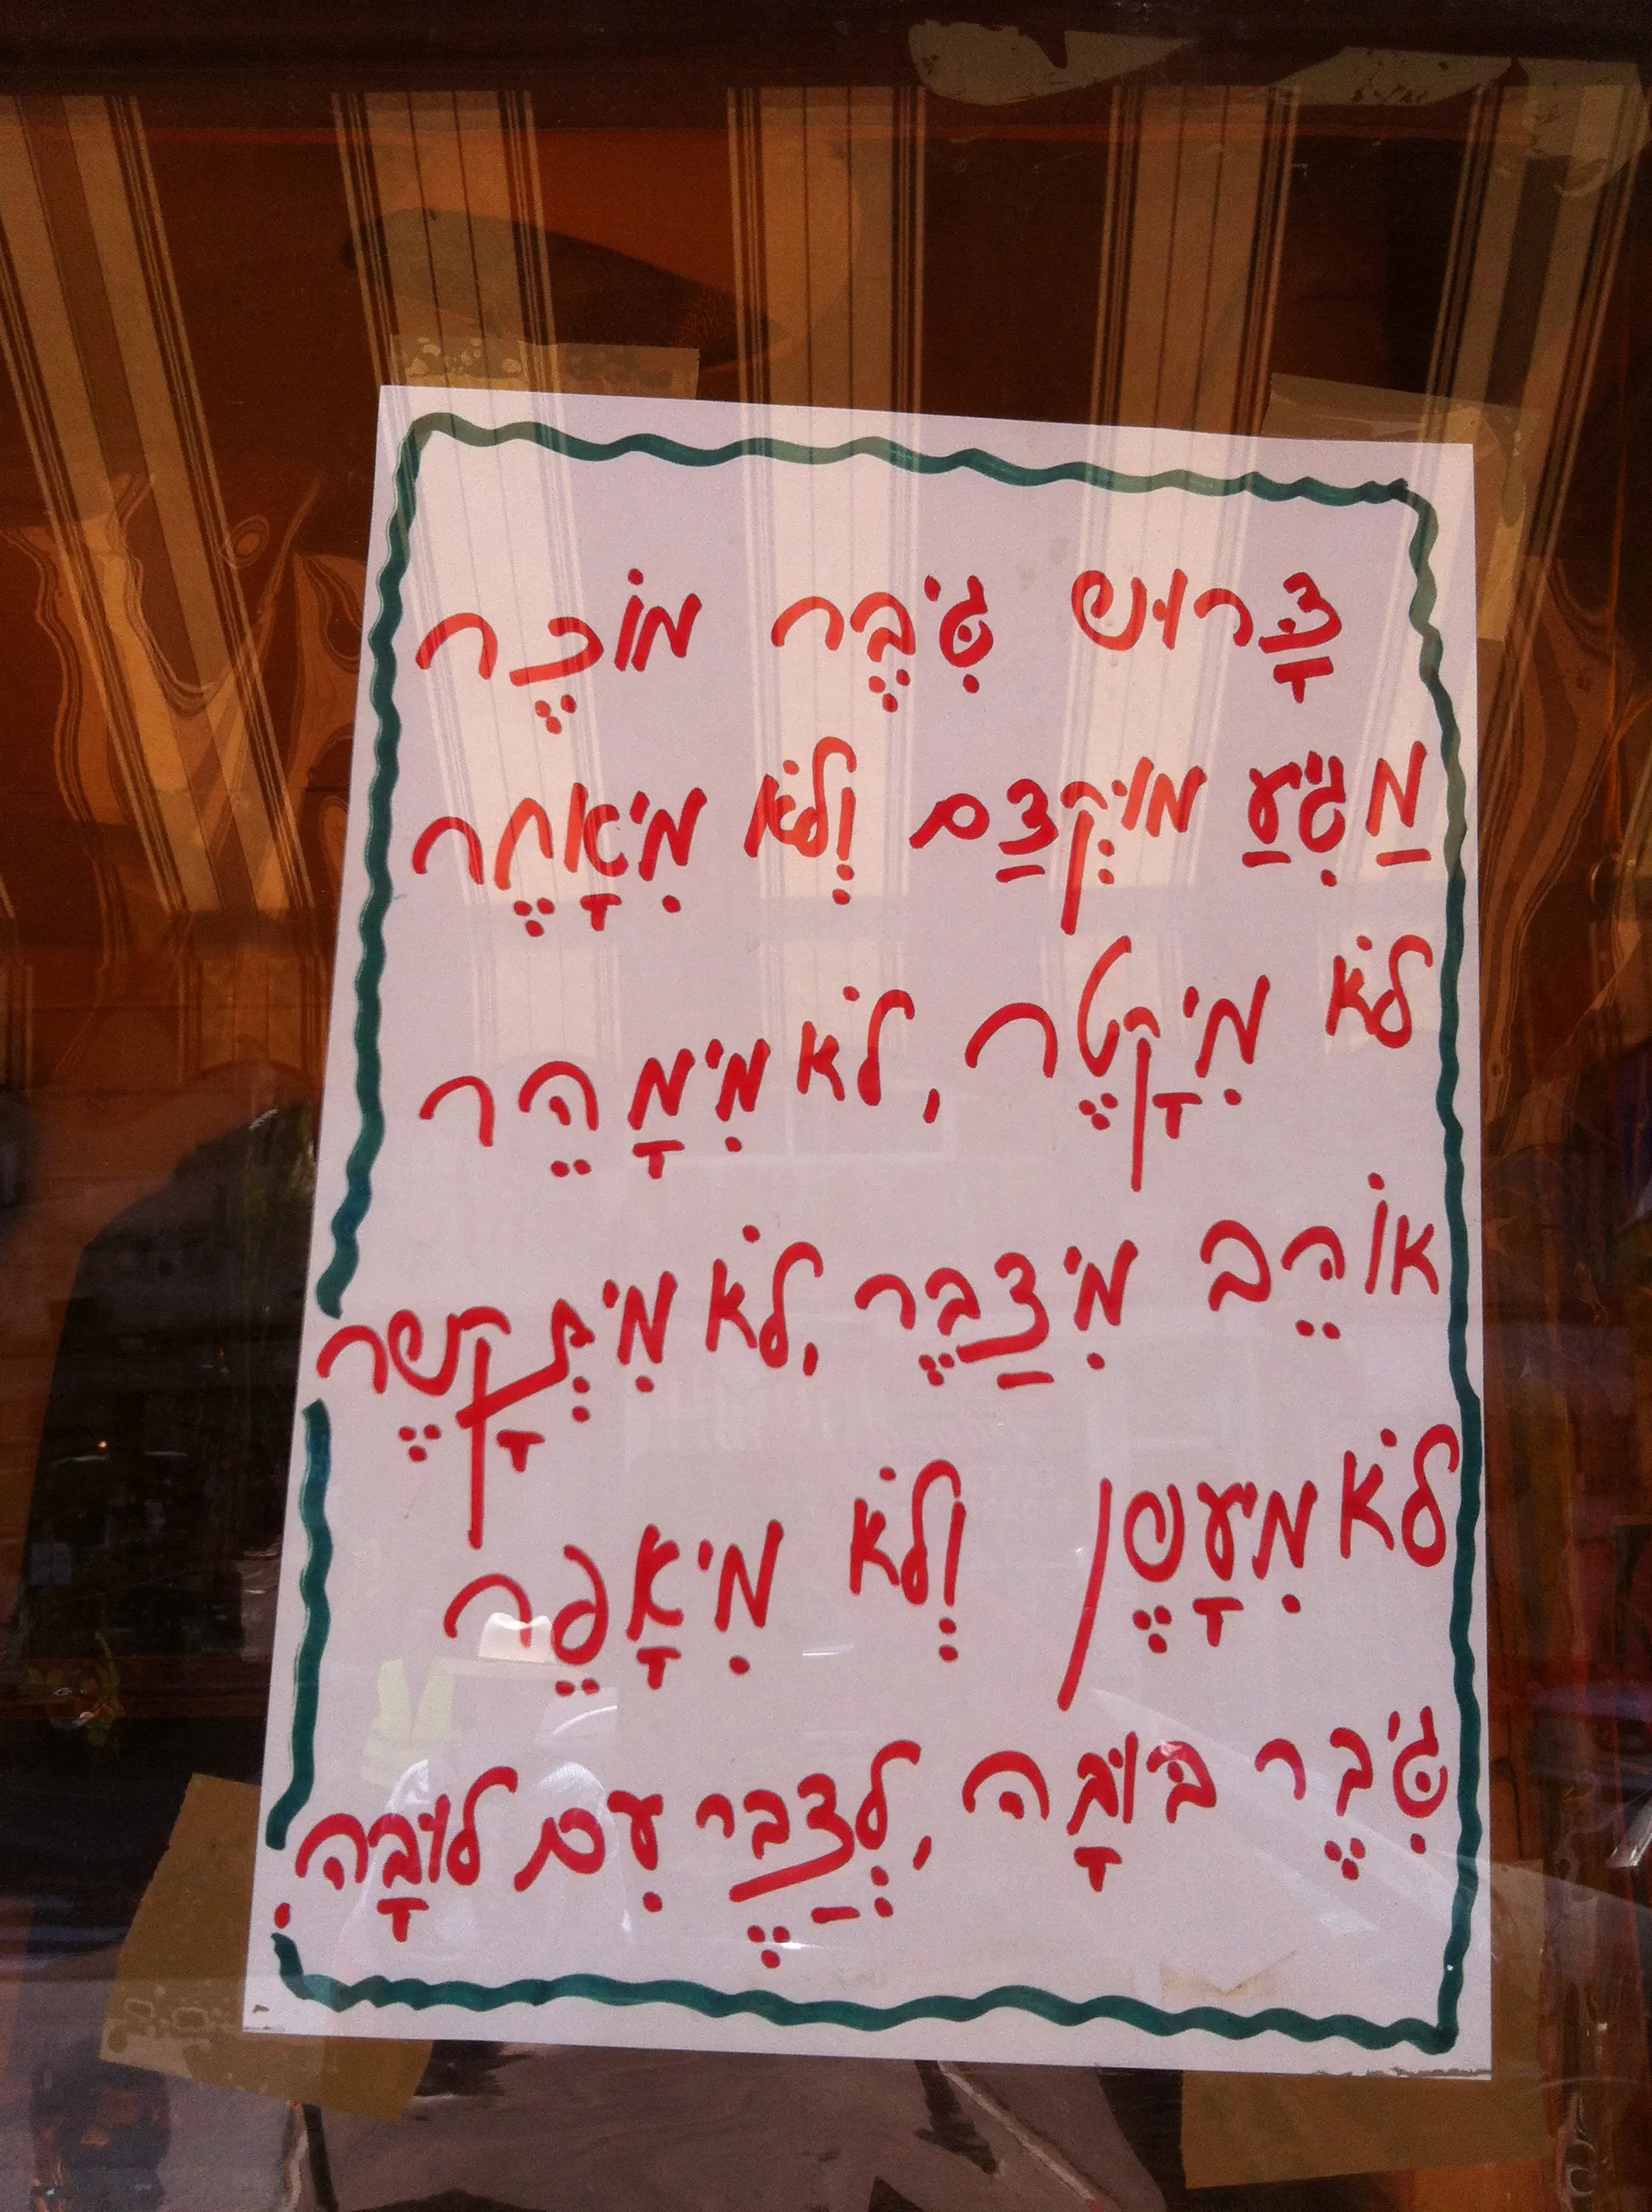 דָּרוּש גִּיבֶּר מוֹכֶר
מַגִיעַ מוּקְדַם וְלֹא מִיאָחֶר
לֹא מִיקָטֶר, לֹא מִימָהֵר
אוֹהֵב מִידַבֶּר, לֹא מִיתְקָשֶר
לֹא מִיעָשֶן וְלֹא מִיאָפֵר
גִּיבֶר בּוּבָּה, לְדַבֶּר עִם לוּבָּה!